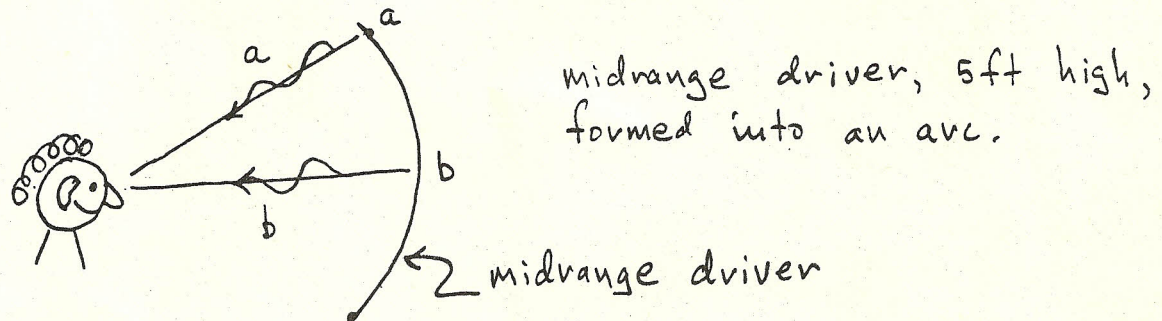 a
a
midrange driver, 5ft high,
formed into an arc.
b
b
midrange driver